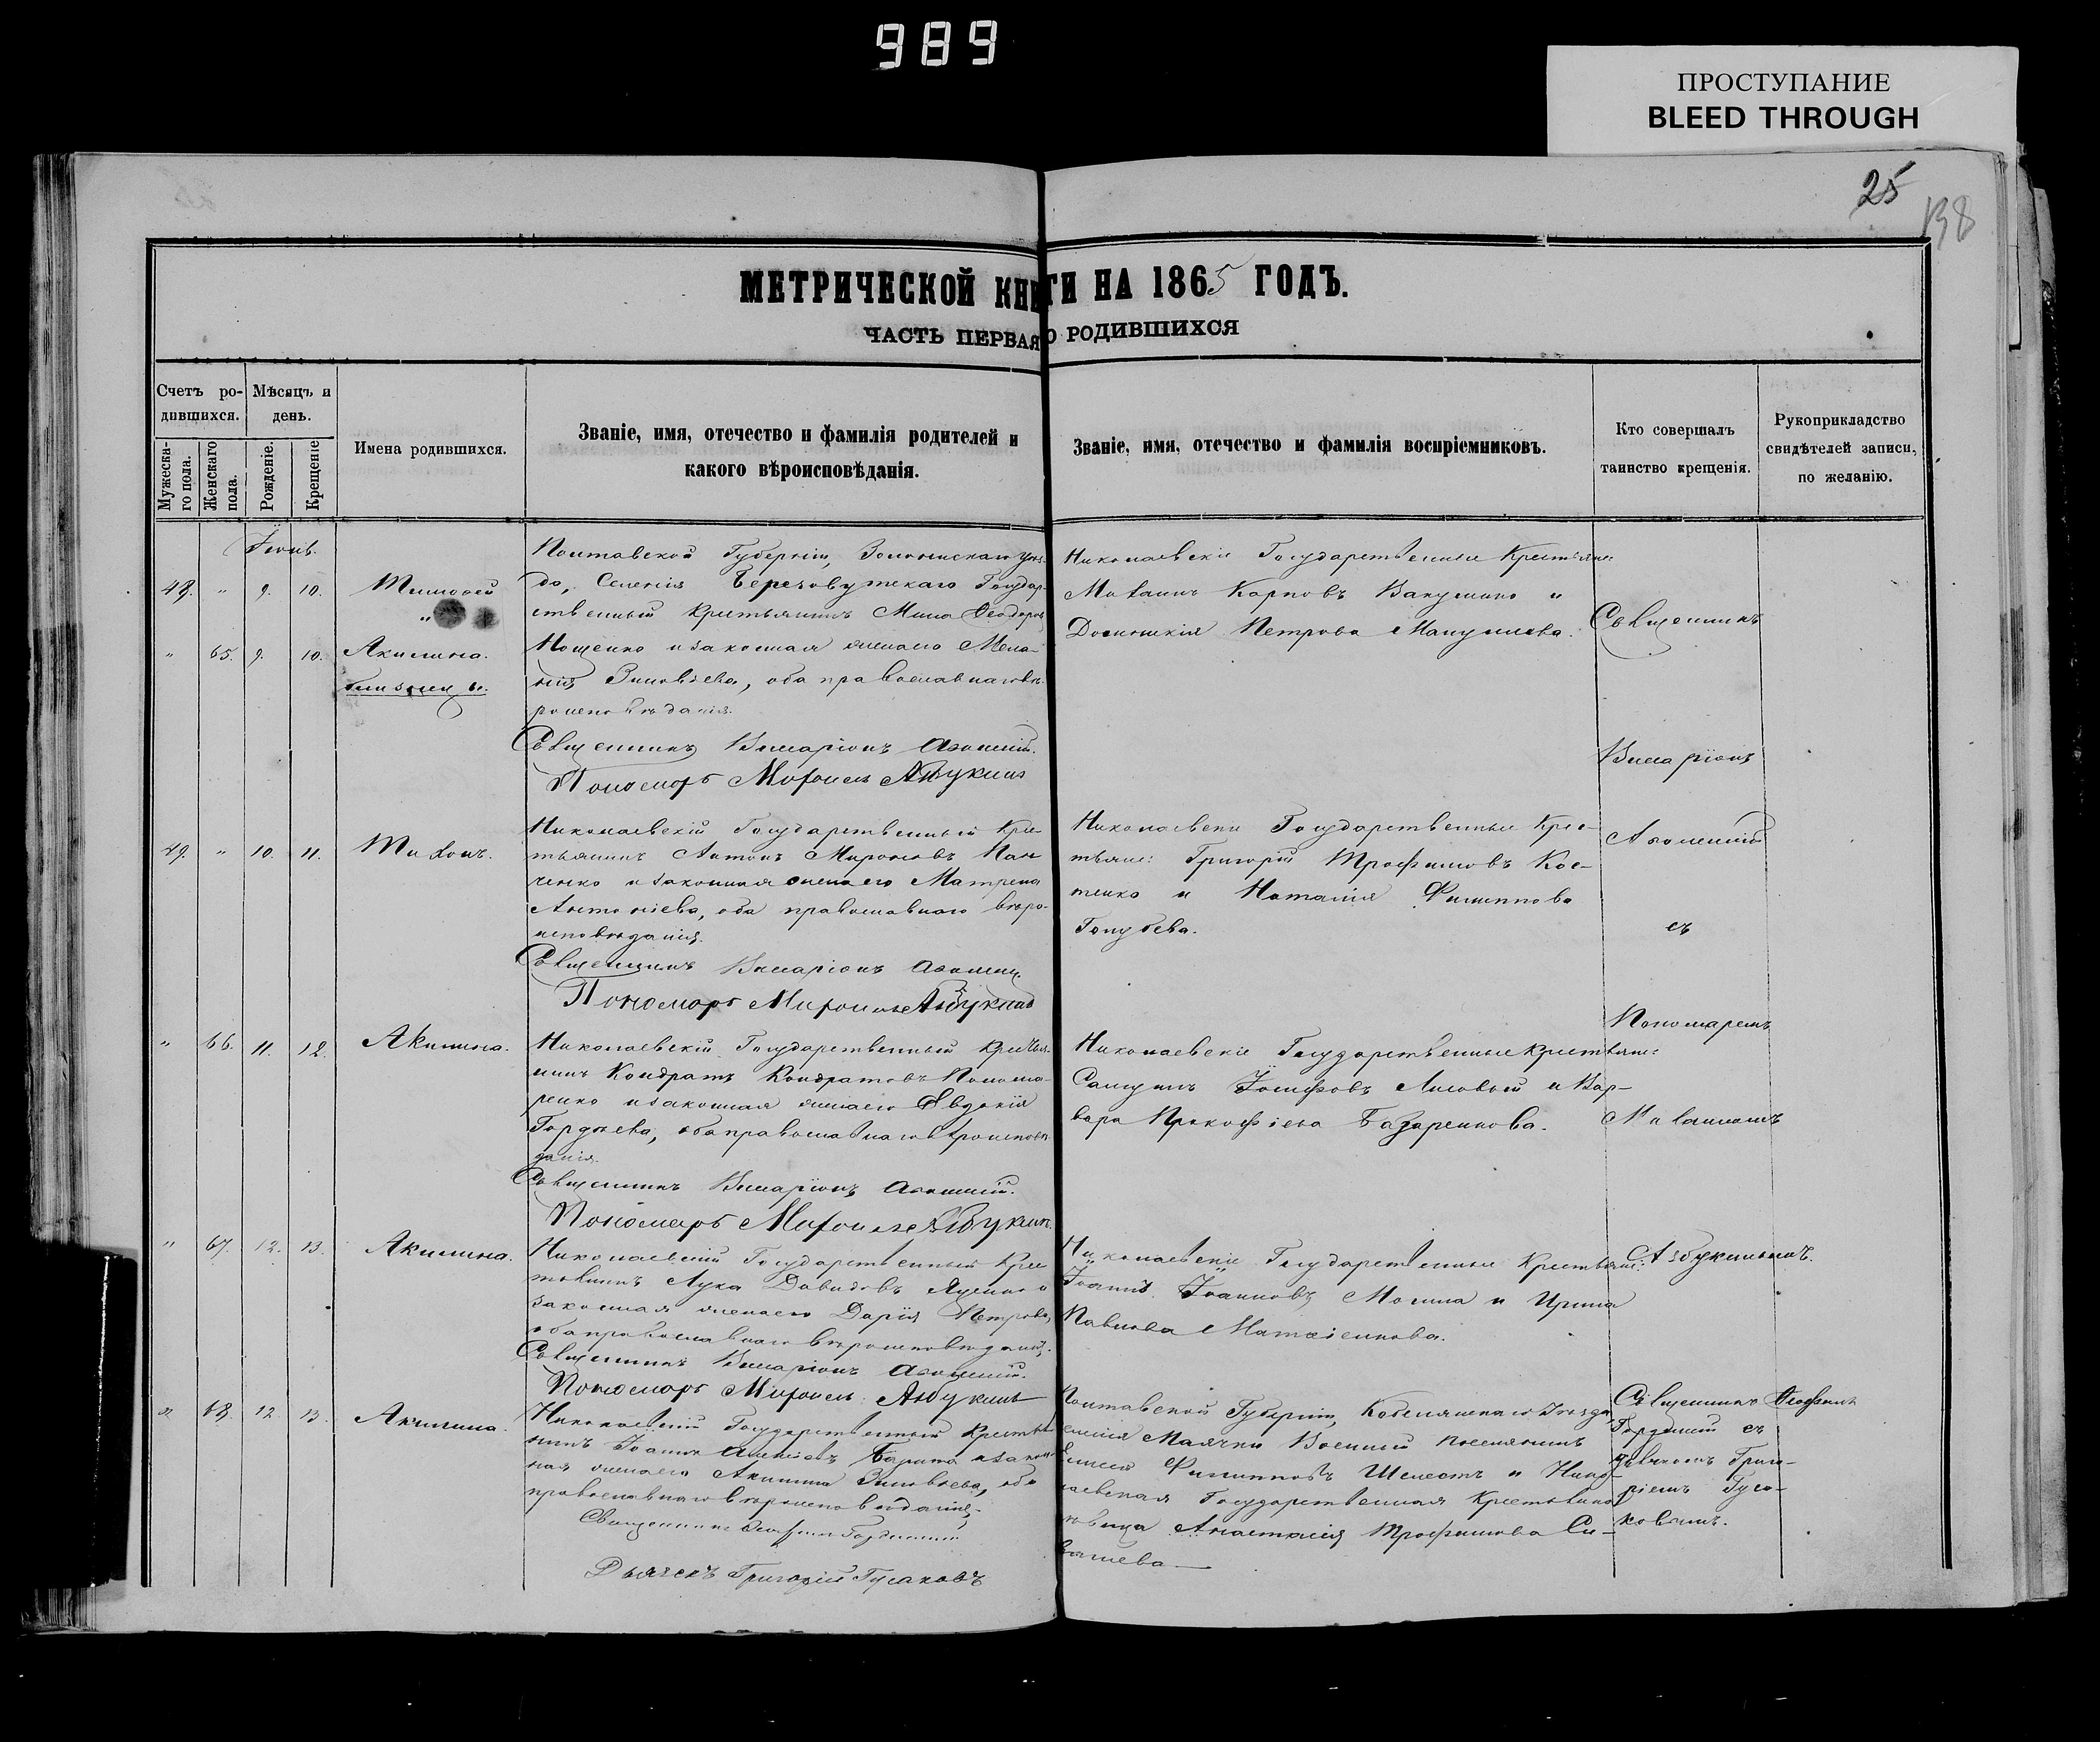 989
ПРОСТУПАНИЕ
BLEED THROUGH
25
198
МЕТРИЧЕСКОЙ КНИГИ НА 1865 ГОДЪ.
ЧАСТЬ ПЕРВАЯ О РОДИВШИХСЯ
Счетъ ро-
дившихся.
Мужеска-
го пола.
Женскаго
пола.
Мѣсяцъ и
день.
Рожденіе.
Крещеніе
Имена родившихся.
Званіе, имя, отечество и фамилія родителей и
какого вѣроисповѣданія.
Званіе, имя, отечество и фамилія воспріемниковъ.
Кто совершалъ
таинство крещенія.
Рукоприкладство
свидѣтелей записи,
по желанію.
Іюнь.
48. " 9. 10. Тимофей
" 65. 9. 10. Акилина.
близнецы.
Полтавской Губерніи, Золотоискаго Уѣз-
да, Селенія Березовутскаго Государ-
ственный Крестьянинъ Мина Феодоровъ
Нощенко и законная жена его Мела-
нія Зиновьева, оба православнаго вѣ-
роисповѣданія.
Священникъ Иларіонъ
Пономарь Мирон Азбукинъ
Николаевскіе Государственные Крестьяне:
Михаилъ Карповъ Вакуленко и
Петрова
Священникъ
Иларіонъ
49. " 10. 11. Тихонъ.
Николаевскій Государственный Кре-
стьянинъ Антонъ Мироновъ Пан
ченко и законная жена его Матрена
Антоніева, оба православнаго вѣро-
исповѣданія.
Священникъ Иларіонъ
Пономарь Азбукинъ
Николаевскіе Государственные Крес-
тьяне: Григорій Трофимовъ Кос-
тенко и Наталія Филиппова
Голубева.
съ
Пономаремъ
" 66. 11. 12. Акилина.
Николаевскій Государственный Крестья-
нинъ Кондратъ Кондратовъ Понома-
ренко и законная жена его Евдокія
Гордѣева, оба православнаго вѣроисповѣ-
данія.
Священникъ Иларіонъ
Пономарь Азбукинъ
Николаевскіе Государственные Крестьяне:
Самуилъ Іосифовъ Лисовый и Вар-
вара Прокофіева Базаренкова.
" 67. 12. 13. Акилина.
Николаевскій Государственный Крес
тьянинъ Лука Давидовъ Яценко и
законная жена его Дарія Петрова,
оба православнаго вѣроисповѣданія.
Священникъ Иларіонъ
Пономарь Азбукинъ
Николаевскіе Государственные Крестьяне:
Іоаннъ Іоанновъ и Ирина
Павлова Матвіенкова.
Азбукинымъ.
" 68. 12. 13. Акилина.
Николаевскій Государственный Крестья
нинъ Іоаннъ и закон
ная жена его Акилина Зиновьева, оба
православнаго вѣроисповѣданія.
Священникъ Феофилъ
Дьячекъ Григорій Гусаковъ
Полтавской Губерніи, Кобелякскаго Уѣзда
селенія Маячки Военный поселянинъ
Елисей Филипповъ Шелестъ и Нико-
лаевская Государственная Крестьянка
Анастасія Трофимова Си-
Священникъ Феофилъ
съ
дьячкомъ Григо-
ріемъ Гуса-
ковымъ.